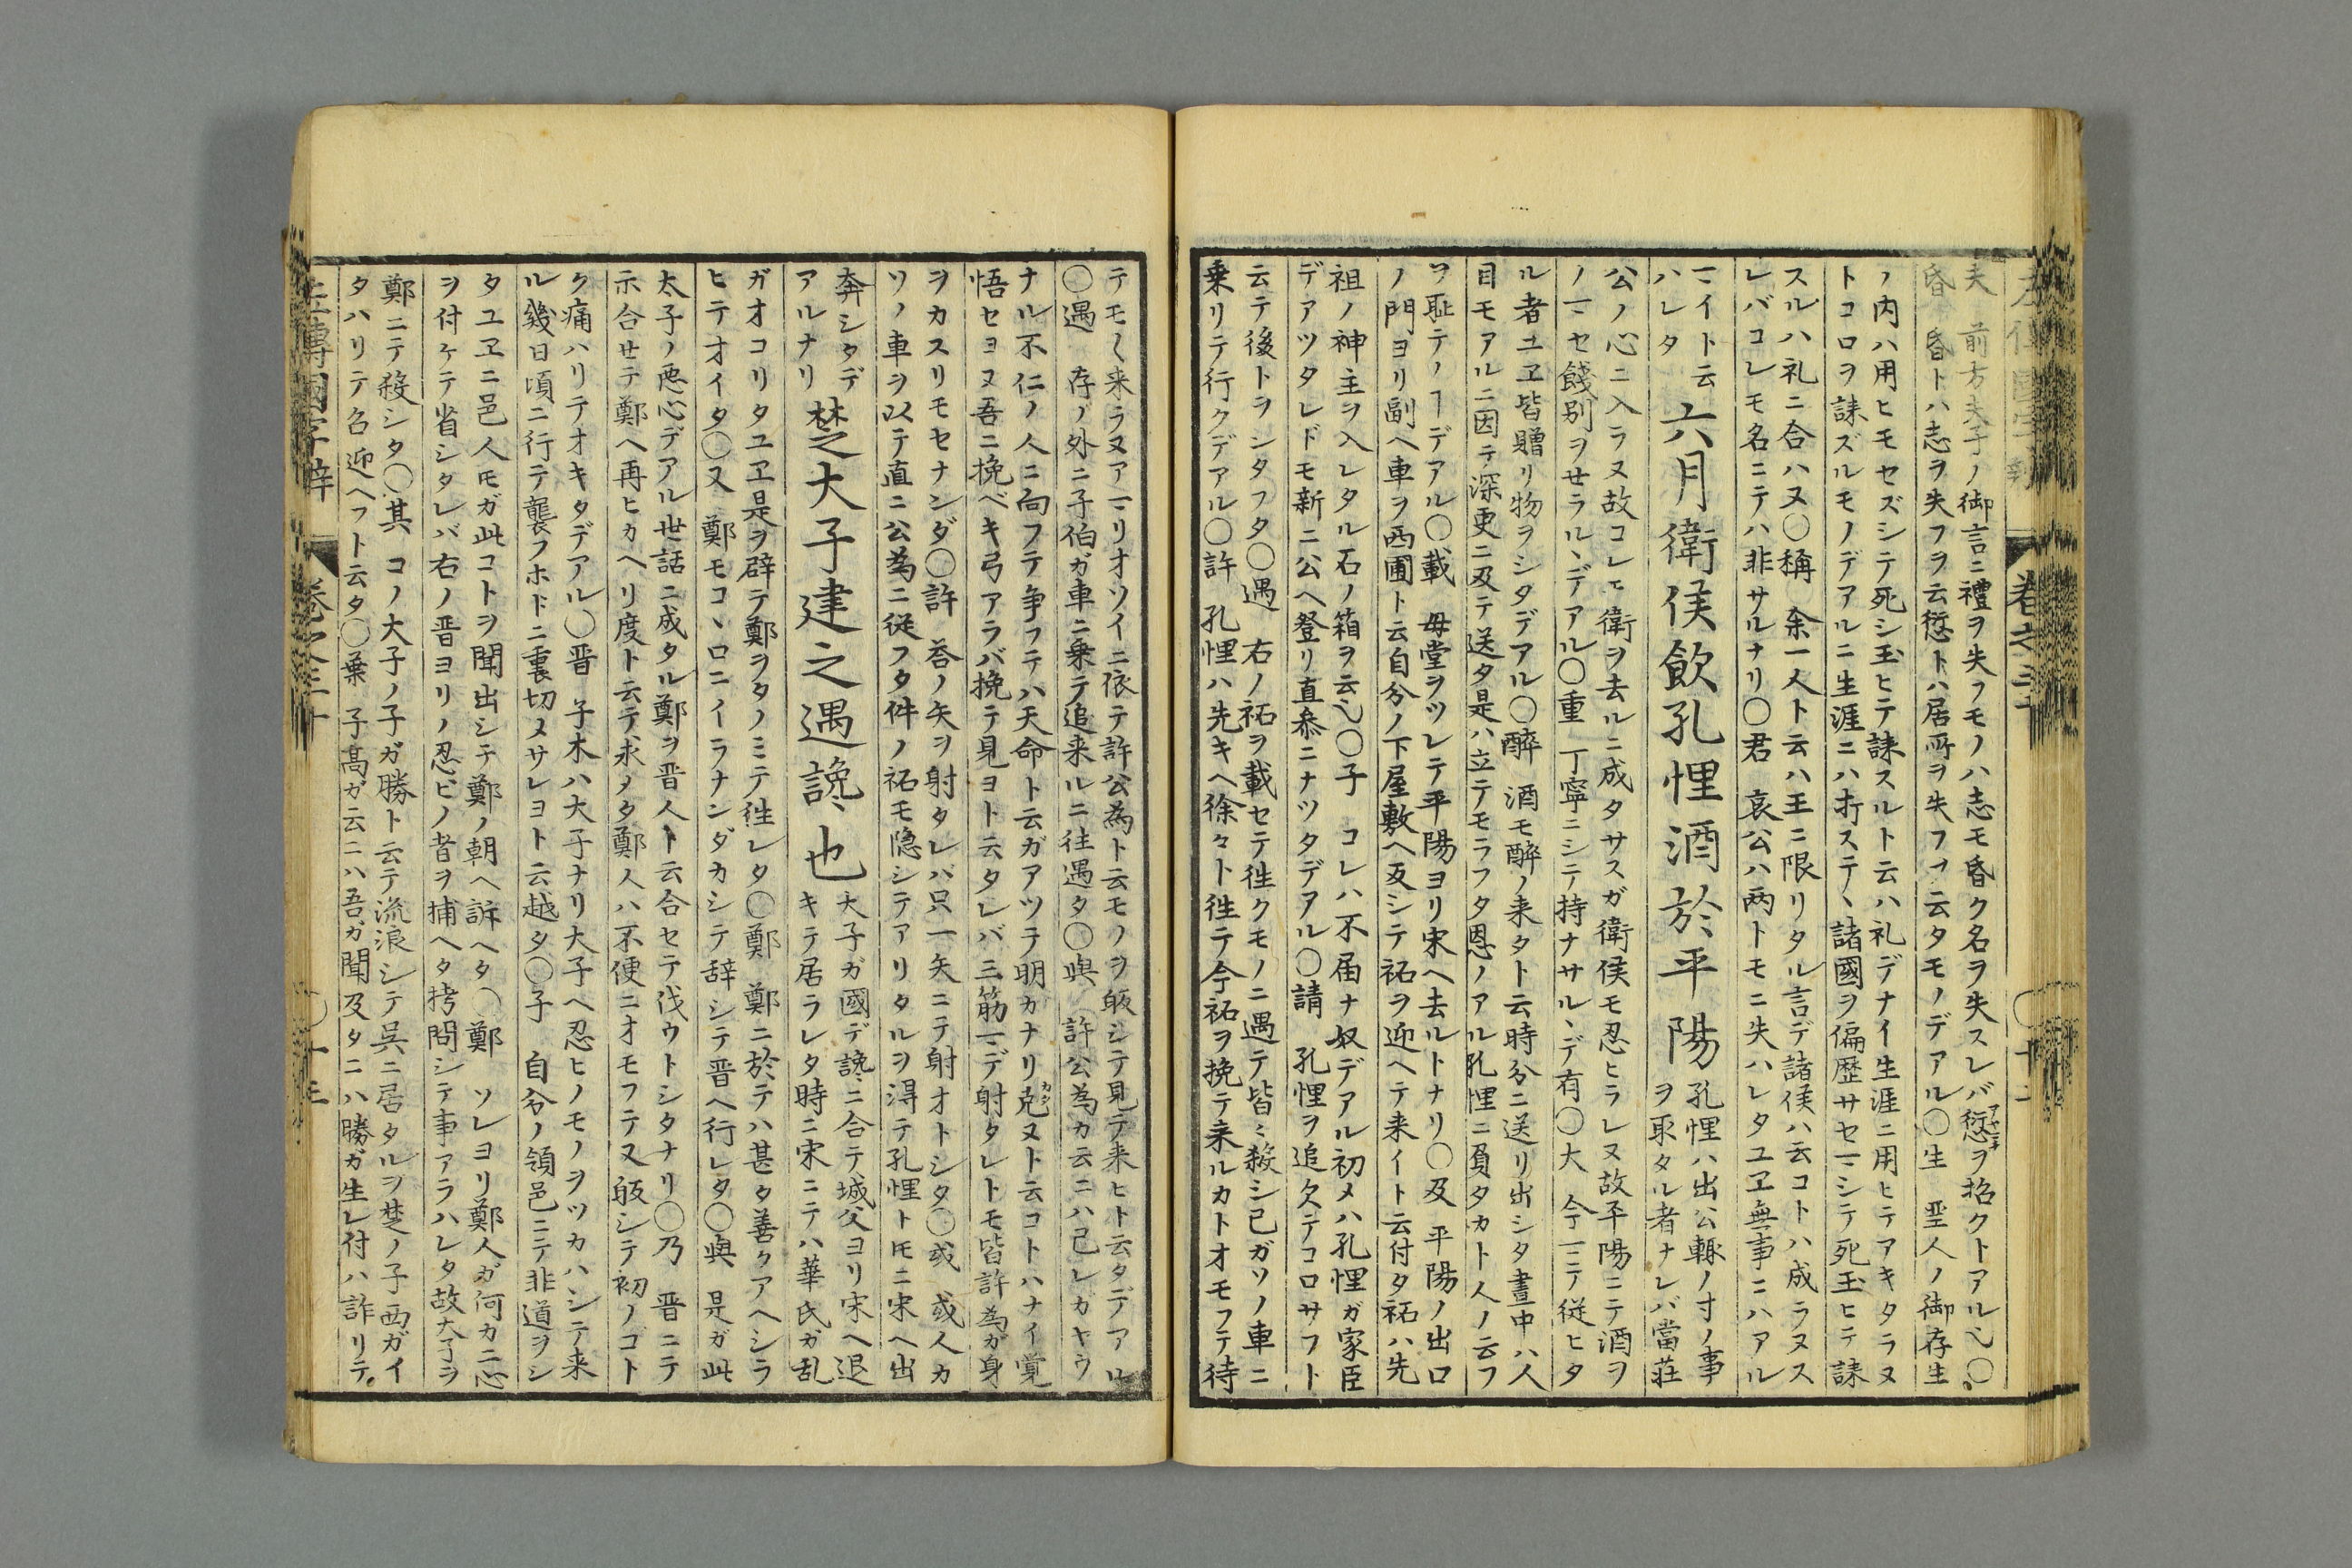 左傳國字辯 卷之三十 〇十二
夫 前方夫子ノ御言ニ禮ヲ失フモノハ志モ昏ク名ヲ失スレバ愆ヲ招クトアル也〇
昏 昏トハ志ヲ失フヲ云愆トハ居所ヲ失フヲ云タモノデアル〇生 聖人ノ御存生
ノ内ハ用ヒモセズシテ死シ玉ヒテ誄スルト云ハ礼デナイ生涯ニ用ヒテアキタラヌ
トコロヲ誄ズルモノデアルニ生涯ニハ打ステヽ諸國ヲ偏歴サセヿシテ死玉ヒテ誄
スルハ礼ニ合ハヌ〇稱 余一人ト云ハ王ニ限リタル言デ諸侯ハ云コトハ成ラヌス
レバコレモ名ニテハ非サルナリ〇君 哀公ハ兩トモニ失ハレタユヱ無事ニハアル
ヿイト云
ハレタ
六月衛侯飲孔悝酒於平陽
孔悝ハ出公輙ノ寸ノ事
ヲ取タル者ナレバ當荘
公ノ心ニ入ラヌ故コレモ衛ヲ去ルニ成タサスガ衛侯モ忍ヒラレヌ故平陽ニテ酒ヲ
ノヿセ餞別ヲせラルヽデアル〇重 丁寧ニシテ持ナサルヽデ有〇大 今ヿニテ従ヒタ
ル者ユヱ皆贈リ物ヲシタデアル〇醉 酒モ醉ノ来タト云時分ニ送リ出シタ晝中ハ人
目モアルニ因テ深更ニ及テ送タ是ハ立テモラフタ恩ノアル孔悝ニ負タカト人ノ云フ
ヲ耻テノヿデアル〇載 母堂ヲツレテ平陽ヨリ宋ヘ去ルトナリ〇及 平陽ノ出口
ノ門ヨリ副ヘ車ヲ西圃ト云自分ノ下屋敷ヘ反シテ祏ヲ迎ヘテ来イト云付タ祏ハ先
祖ノ神主ヲ入レタル石ノ箱ヲ云也〇子 コレハ不届ナ奴デアル初メハ孔悝ガ家臣
デアツタレドモ新ニ公ヘ登リ直参ニナツタデアル〇請 孔悝ヲ追欠テコロサフト
云テ後トヲシタフタ〇遇 右ノ祏ヲ載セテ徃クモノニ遇テ皆ミ殺シ己ガソノ車ニ
乗リテ行クデアル〇許 孔悝ハ先キヘ徐々ト徃テ今祏ヲ挽テ来ルカトオモフテ待
テモ〱来ラヌアヿリオソイニ依テ許公為ト云モノヲ皈シテ見テ来ヒト云タデアル
〇遇 存ノ外ニ子伯ガ車ニ乗テ追来ルニ徃遇タ〇與 許公為カ云ニハ己レガキウ
ナル不仁ノ人ニ向フテ争フテハ天命ト云ガアツテ明カナリ克ヌト云コトハナイ覚
悟セヨヌ吾ニ挽ベキ弓アラバ挽テ見ヨト云タレバ三筋ヿデ射タレトモ皆許為ガ身
ヲカスリモセナンダ〇許 答ノ矢ヲ射タレバ只一矢ニテ射オトシタ〇或 或人カ
ソノ車ヲ以テ直ニ公為ニ従フタ件ノ祏モ隠シテアリタルヲ得テ孔悝トモニ宋ヘ出
奔シタデ
アルナリ
楚大子建之遇讒也
大子ガ國デ讒ニ合テ城父ヨリ宋ヘ退
キテ居ラレタ時ニ宋ニテハ華氏ガ乱
ガオコリタユヱ是ヲ辟テ鄭ヲタノミテ徃レタ〇鄭 鄭ニ於テハ甚タ善クアヘシラ
ヒテオイタ〇又 鄭モコヽロニイラナンダカシテ辞シテ晋ヘ行レタ〇與 是ガ此
太子ノ悪心デアル世話ニ成タル鄭ヲ晋人ト云合セテ伐ウトシタナリ〇乃 晋ニテ
示合せテ鄭ヘ再ヒカヘリ度ト云テ求メタ鄭人ハ不便ニオモフテ又皈シテ初ノゴト
ク痛ハリテオキタデアル〇晋 子木ハ大子ナリ大子ヘ忍ヒノモノヲツカハシテ来
ル幾日頃ニ行テ襲フホドニ裏切メサレヨト云越タ〇子 自分ノ領邑ニテ非道ヲシ
タユヱニ邑人㕝ガ此コトヲ聞出シテ鄭ノ朝ヘ訴ヘタ〇鄭 ソレヨリ鄭人ガ何カニ心
ヲ付ケテ省シタレバ右ノ晋ヨリノ忍ビノ者ヲ捕ヘタ拷問シテ事アラハレタ故大子ヲ
鄭ニテ殺シタ〇其 コノ大子ノ子ガ勝ト云テ流浪シテ呉ニ居タルヲ楚ノ子西ガイ
タハリテ召迎ヘフト云タ〇葉 子髙ガ云ニハ吾ガ聞及タニハ勝ガ生レ付ハ詐リテ
左傳國字辯 卷之三十